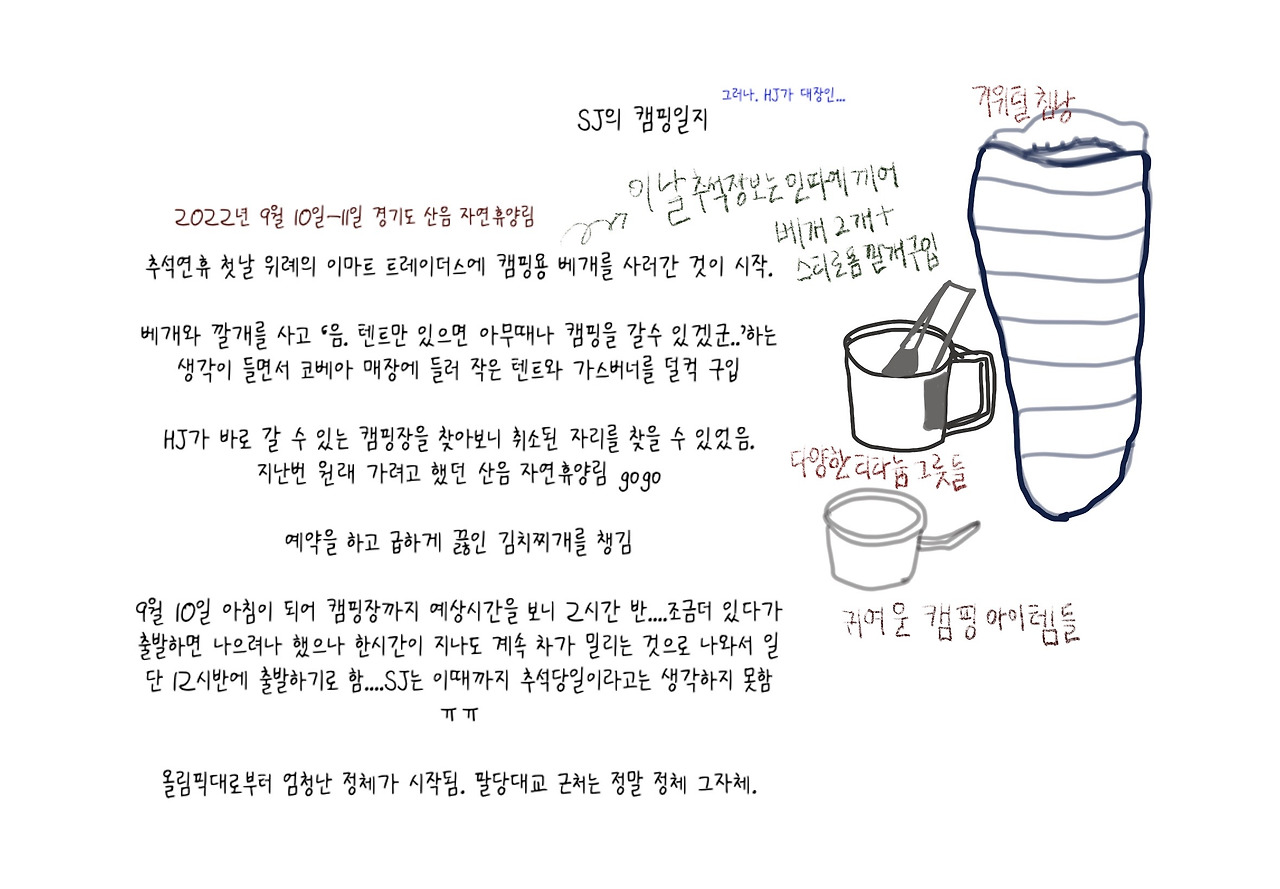 그러나. HJ가 대장인...
SJ의 캠핑일지
거위털 침낭
이날 추석장보는 인파에 끼어
베개 2개+
스티로폼 깔개 구입
2022년 9월 10일-11일 경기도 산음 자연휴양림
추석연휴 첫날 위례의 이마트 트레이더스에 캠핑용 베개를 사러간 것이 시작.
베개와 깔개를 사고 '음. 텐트만 있으면 아무때나 캠핑을 갈수 있겠군..'하는
생각이 들면서 코베아 매장에 들러 작은 텐트와 가스버너를 덜컥 구입
HJ가 바로 갈 수 있는 캠핑장을 찾아보니 취소된 자리를 찾을 수 있었음.
지난번 원래 가려고 했던 산음 자연휴양림 gogo
다양한 티타늄 그릇들
예약을 하고 급하게 끓인 김치찌개를 챙김
9월 10일 아침이 되어 캠핑장까지 예상시간을 보니 2시간 반....조금더 있다가
출발하면 나으려나 했으나 한시간이 지나도 계속 차가 밀리는 것으로 나와서 일
단 12시반에 출발하기로 함....SJ는 이때까지 추석당일이라고는 생각하지 못함
ㅠㅠ
귀여운 캠핑 아이템들
올림픽대로부터 엄청난 정체가 시작됨. 팔당대교 근처는 정말 정체 그자체.